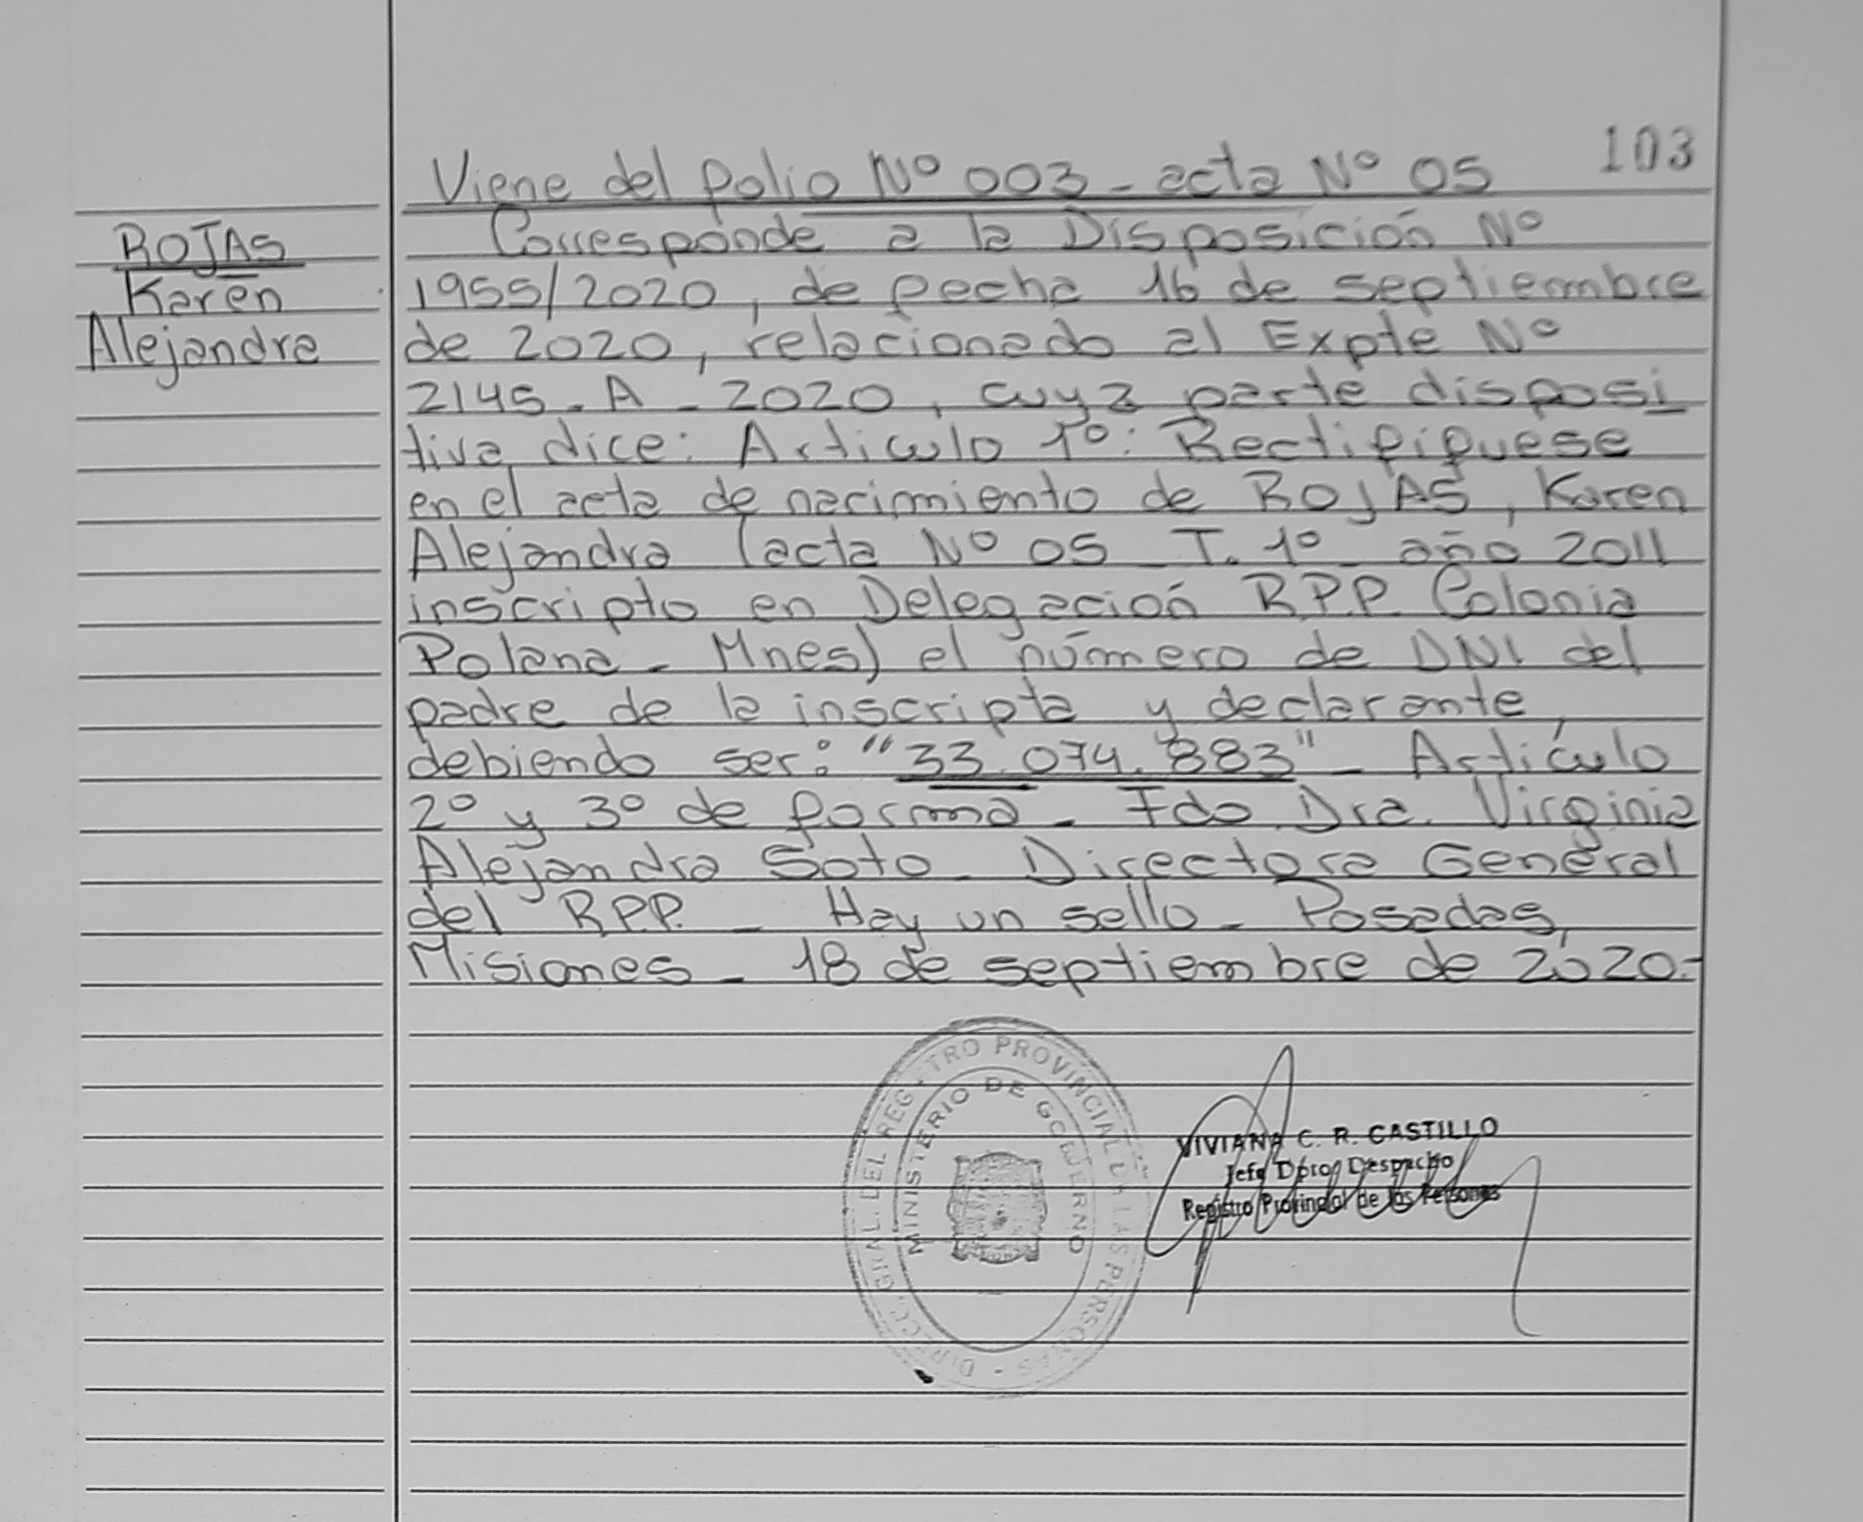 103
Viene del folio Nº 003 - acta Nº 05
ROJAS
Karen
Alejandra
Corresponde a la Disposición Nº
1955/2020, de fecha 16 de septiembre
de 2020, relacionado al Expte Nº
2145 - A - 2020, cuya parte disposi
tiva dice: Articulo 1º: Rectifíquese
en el acta de nacimiento de ROJAS, Karen
Alejandra (acta Nº 05 - T. 1º - año 2011
inscripto en Delegación R.P.P. Colonia
Polana - Mnes) el número de DNI del
padre de la inscripta y declarante,
debiendo ser: "33.074.883" - Artículo
2º y 3º de forma - Fdo Dra. Virginia
Alejandra Soto - Directora General
del R.P.P. - Hay un sello - Posadas,
Misiones - 18 de septiembre de 2020.-
DIRECC. GRAL. DEL REGISTRO PROVINCIAL DE LAS PERSONAS -
MINISTERIO DE GOBIERNO
VIVIANA C. R. CASTILLO
Jefa Dpto Despacho
Registro Provincial de las Personas